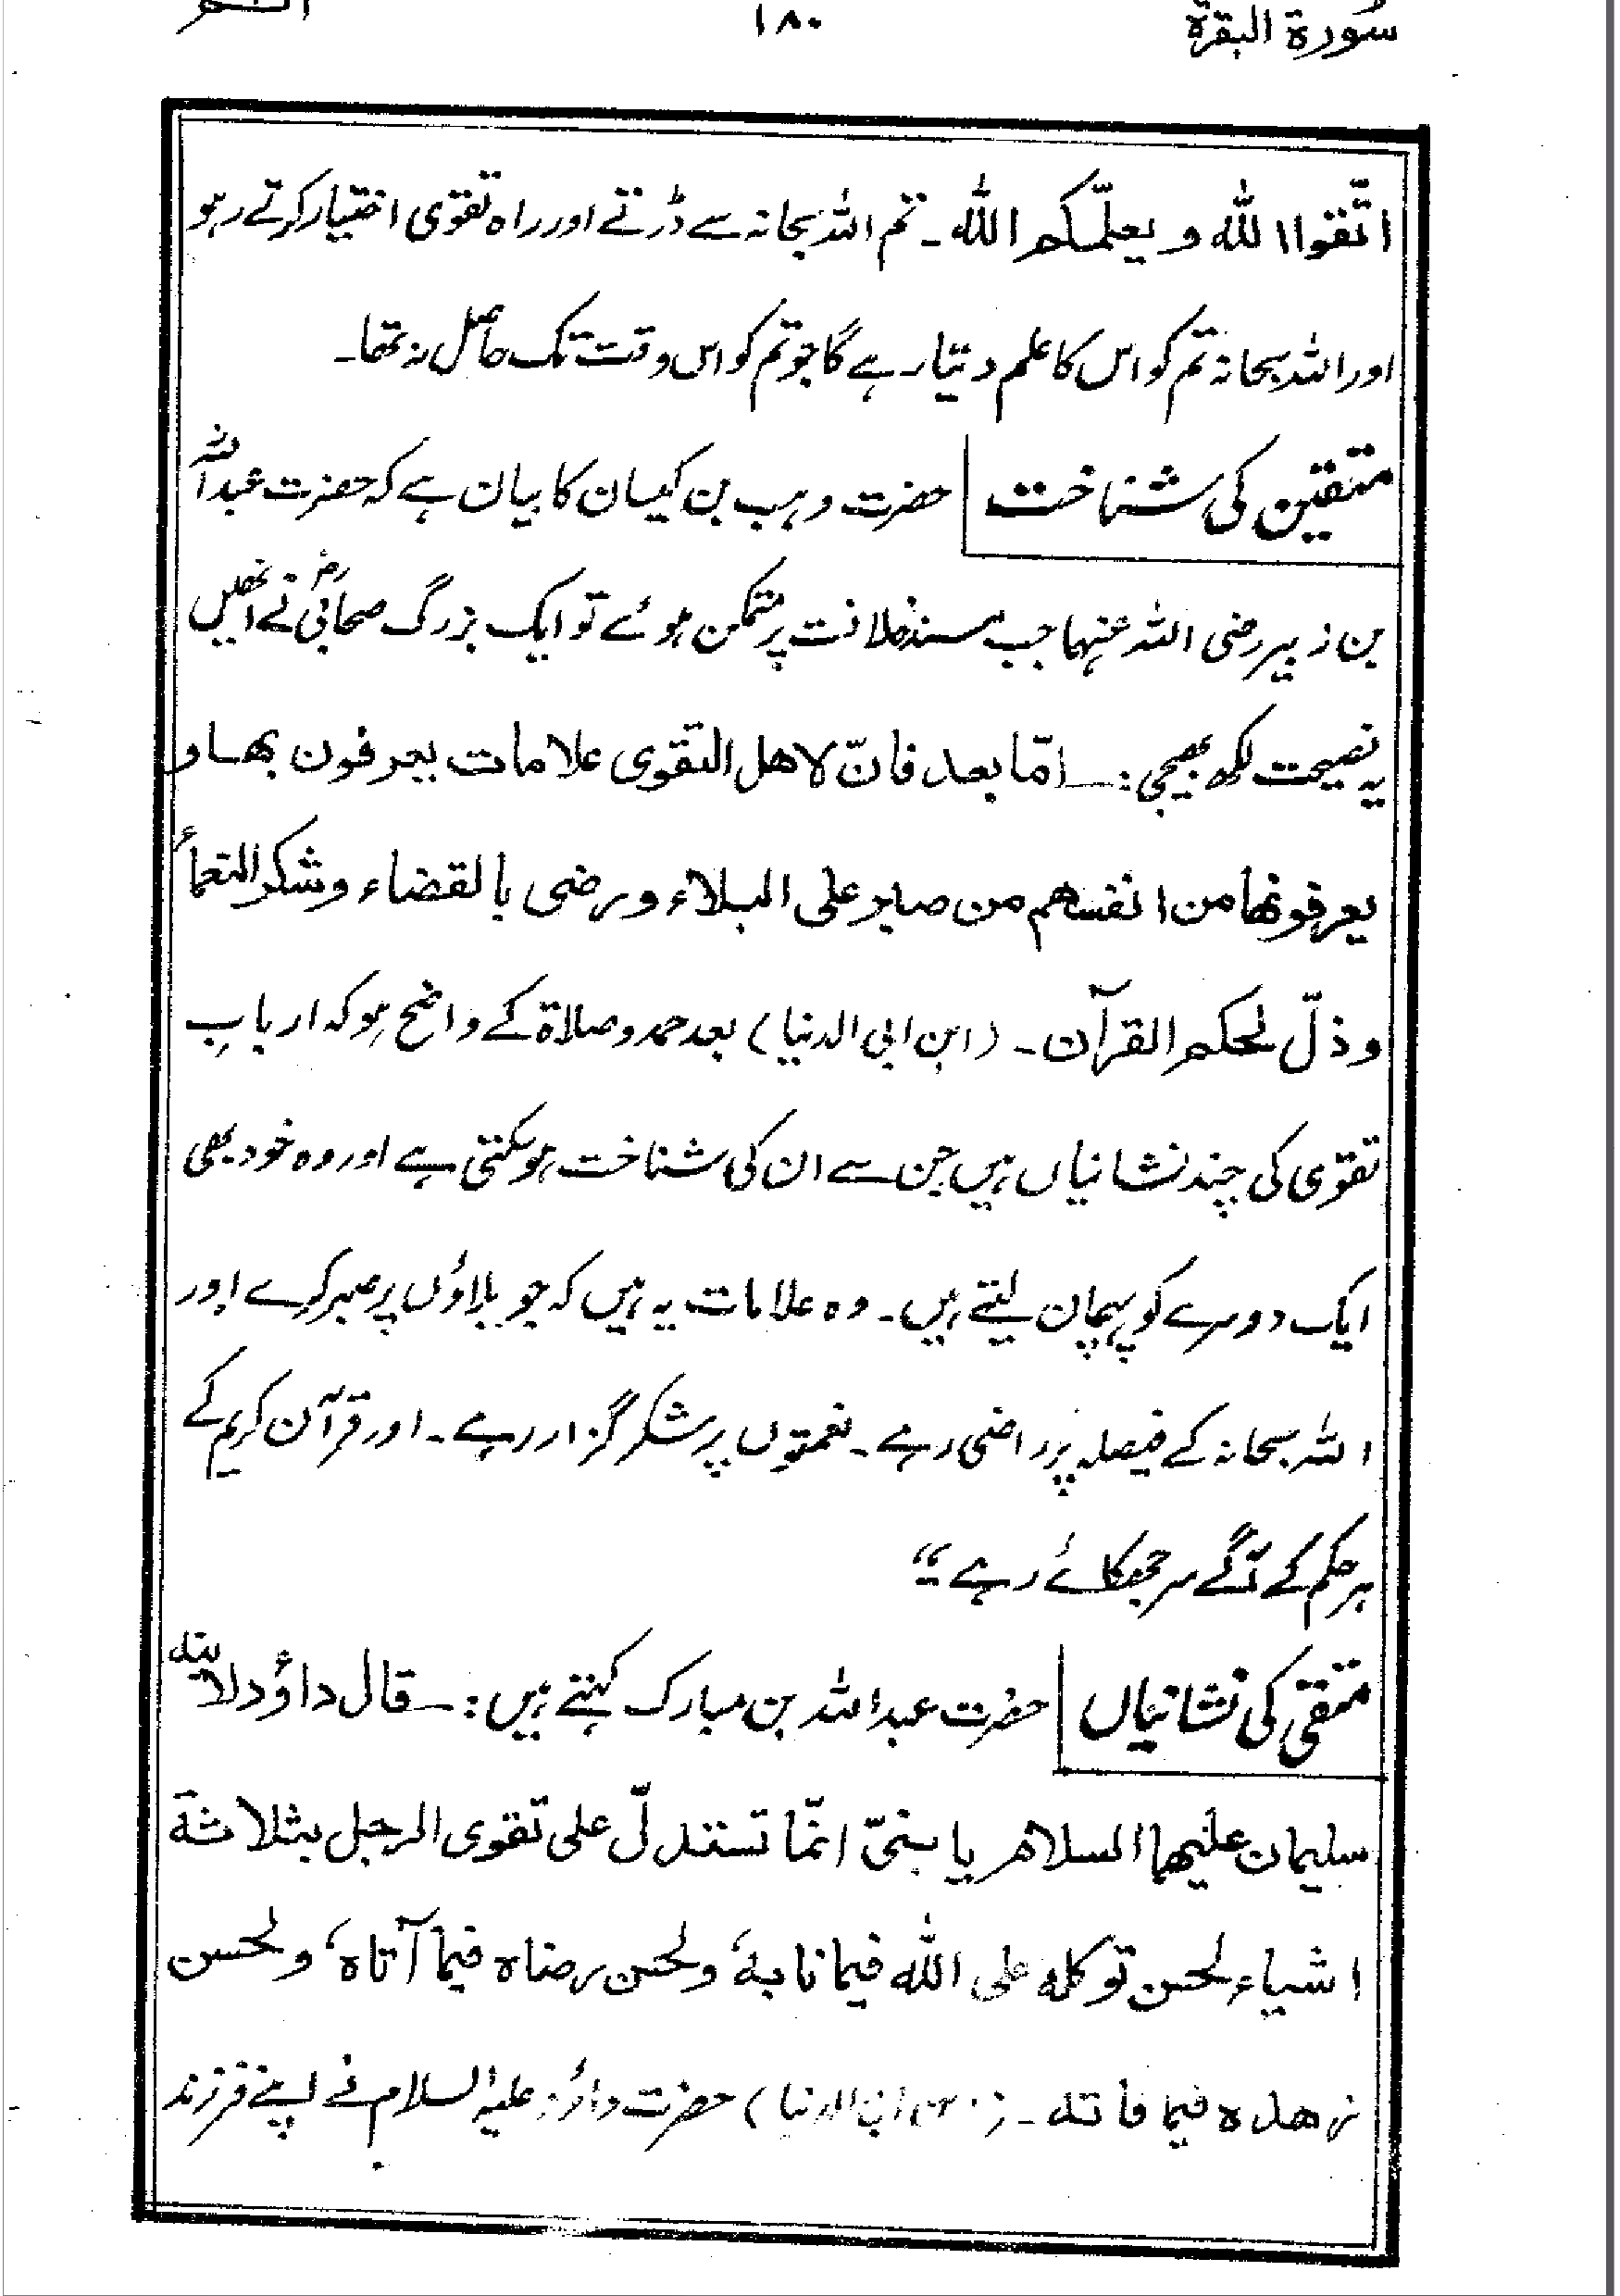 سُورة البقرة ۱۸۰
اتّقوا الله و يعلّمكم الله ۔ تم اللہ سبحانہ سے ڈرتے اور راہ تقوی اختیار کرتے رہو
اور اللہ سبحانہ تم کو اس کا علم دیتا رہے گا جو تم کو اس وقت تک حاصل نہ تھا۔
متقین کی شناخت حضرت وہب بن کیسان کا بیان ہے کہ حضرت عبداللہ
بن زبیر رضی اللہ عنہما جب مسند خلافت پر متمکن ہوئے تو ایک بزرگ صحابیؓ نے انھیں
یہ نصیحت لکھ بھیجی :۔ امّا بعد فانّ لاهل التقوى علامات يعرفون بها و
يعرفونها من انفسهم من صبر على البلاء ورضى بالقضاء وشكر النعماء
وذلّ لحكم القرآن ۔ (ابن ابی الدنیا) بعد حمد و صلاۃ کے واضح ہو کہ اربابِ
تقوٰی کی چند نشانیاں ہیں جن سے ان کی شناخت ہو سکتی ہے اور وہ خود بھی
ایک دوسرے کو پہچان لیتے ہیں۔ وہ علامات یہ ہیں کہ جو بلاؤں پر صبر کرے اور
اللہ سبحانہ کے فیصلہ پر راضی رہے ۔ نعمتوں پر شکر گزار رہے ۔ اور قرآن کریم کے
ہر حکم کے آگے سر جھکائے رہے ‟
متقی کی نشانیاں حضرت عبداللہ بن مبارک کہتے ہیں :۔ قال داؤد لابنه
سليمان عليهما السلام يا بنىّ انّما تستدلّ على تقوى الرجل بثلاثة
اشياء لحسن توكله على الله فيما نابه، ولحسن رضاه فيما آتاه، ولحسن
زهده فيما فاته ۔ ابن ابی الدنیا) حضرت داؤد علیہ السلام نے اپنے فرزند